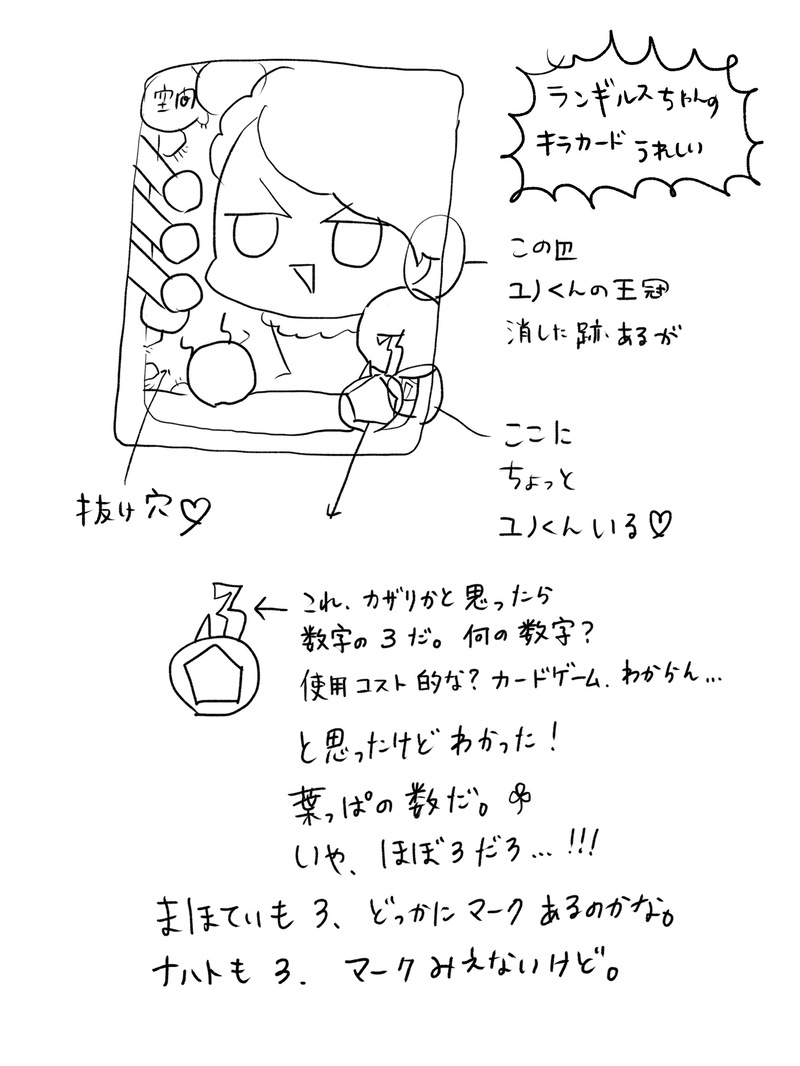 空間
ランギルスちゃんの
キラカードうれしい
この凹
ユノくんの王冠
消した跡あるが
ここに
ちょっと
ユノくんいる♡
抜け穴♡
3
3
これ、カザリかと思ったら
数字の3だ。何の数字?
使用コスト的な?カードゲーム、わからん…
と思ったけどわかった!
葉っぱの数だ。
いや、ほぼ3だろ…!!!
まほていも3、どっかにマークあるのかな。
ナハトも3. マークみえないけど。